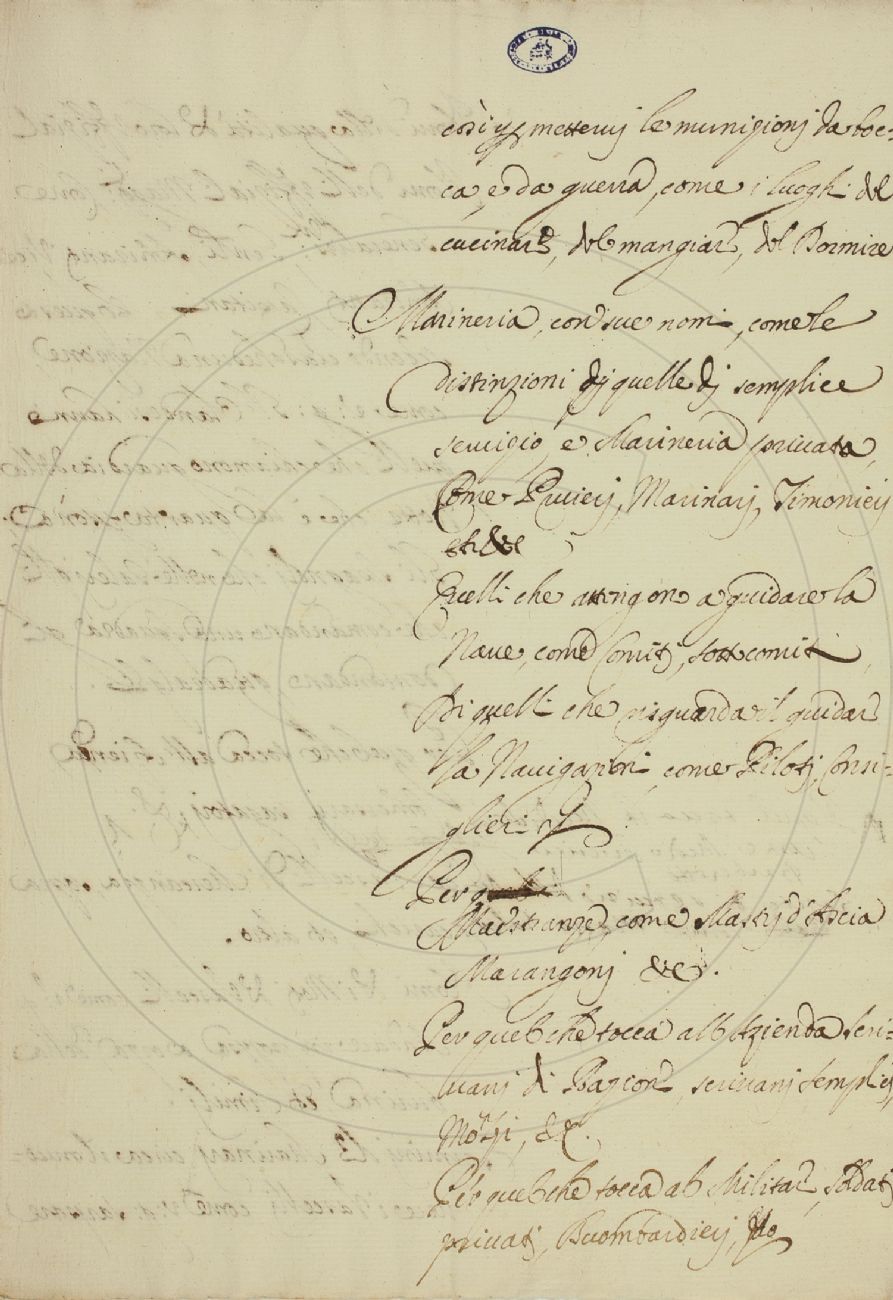 così per mettervj le munizionj da boc=
ca, e da guerra, come i luoghi del
cucinare, del mangiare, del Dormire
Marineria, con sue nomi, come le
distinzioni dj quelle dj semplice
servigio, e Marineria privata,
Come Pruierj, Marinarj, Timonierj
Quelli che attengono a guidare la
Nave, come Comitj, sottcomiti,
Di quelli che risguarda il guidar
la Navigazioni come Pilotj, Consi=
glieri
Per
Maestranze, come Mastrj d'Ascia
Marangonj &c.
Per quel che tocca all Azienda scri=
vanj di Ragione, scrivanj semplicj,
Mozzi, &c.
Per quel che tocca al Militar, soldatj
privatj, Buombardierj,